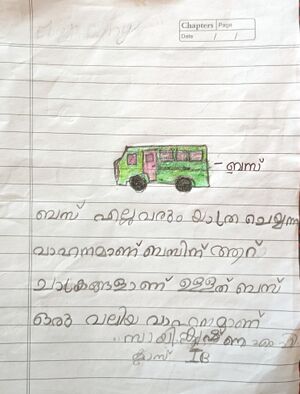 Chapters Page
Date / /
ബസ്
ബസ് എല്ലവരും യാത്ര ചെയ്യുന്ന
വാഹനമാണ് ബസിന് ആറ്
ചക്രങ്ങളാണ് ഉള്ളത് ബസ്
ഒരു വലിയ വാഹനമാണ്
ക്ലാസ് IB